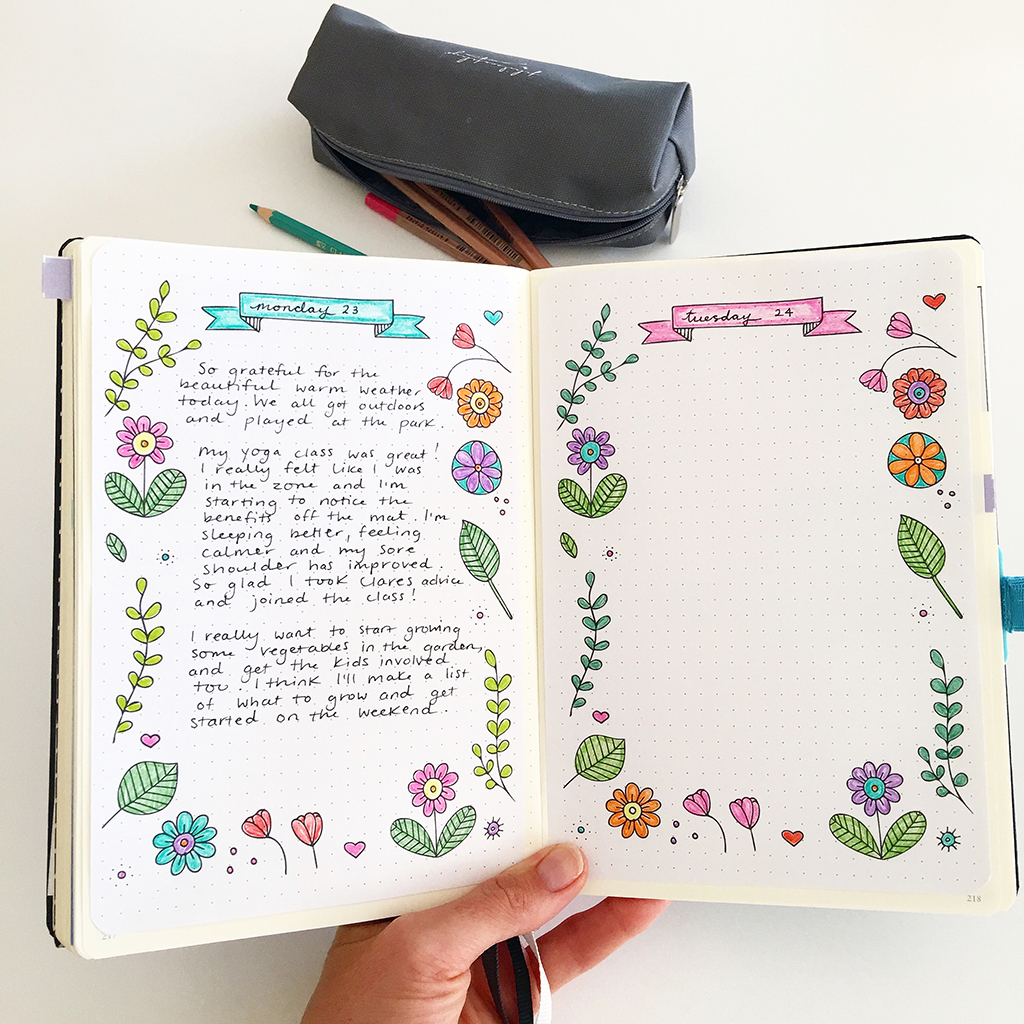 monday 23
So grateful for the
beautiful warm weather
today. We all got outdoors
and played at the park.
My yoga class was great!
I really felt like I was
in the zone and I'm
starting to notice the
benefits off the mat. I'm
sleeping better, feeling
calmer and my sore
shoulder has improved.
So glad I took Clares advice
and joined the class!
I really want to start growing
some vegetables in the garden,
and get the kids involved
too. I think I'll make a list
of what to grow and get
started on the weekend.
tuesday 24
218